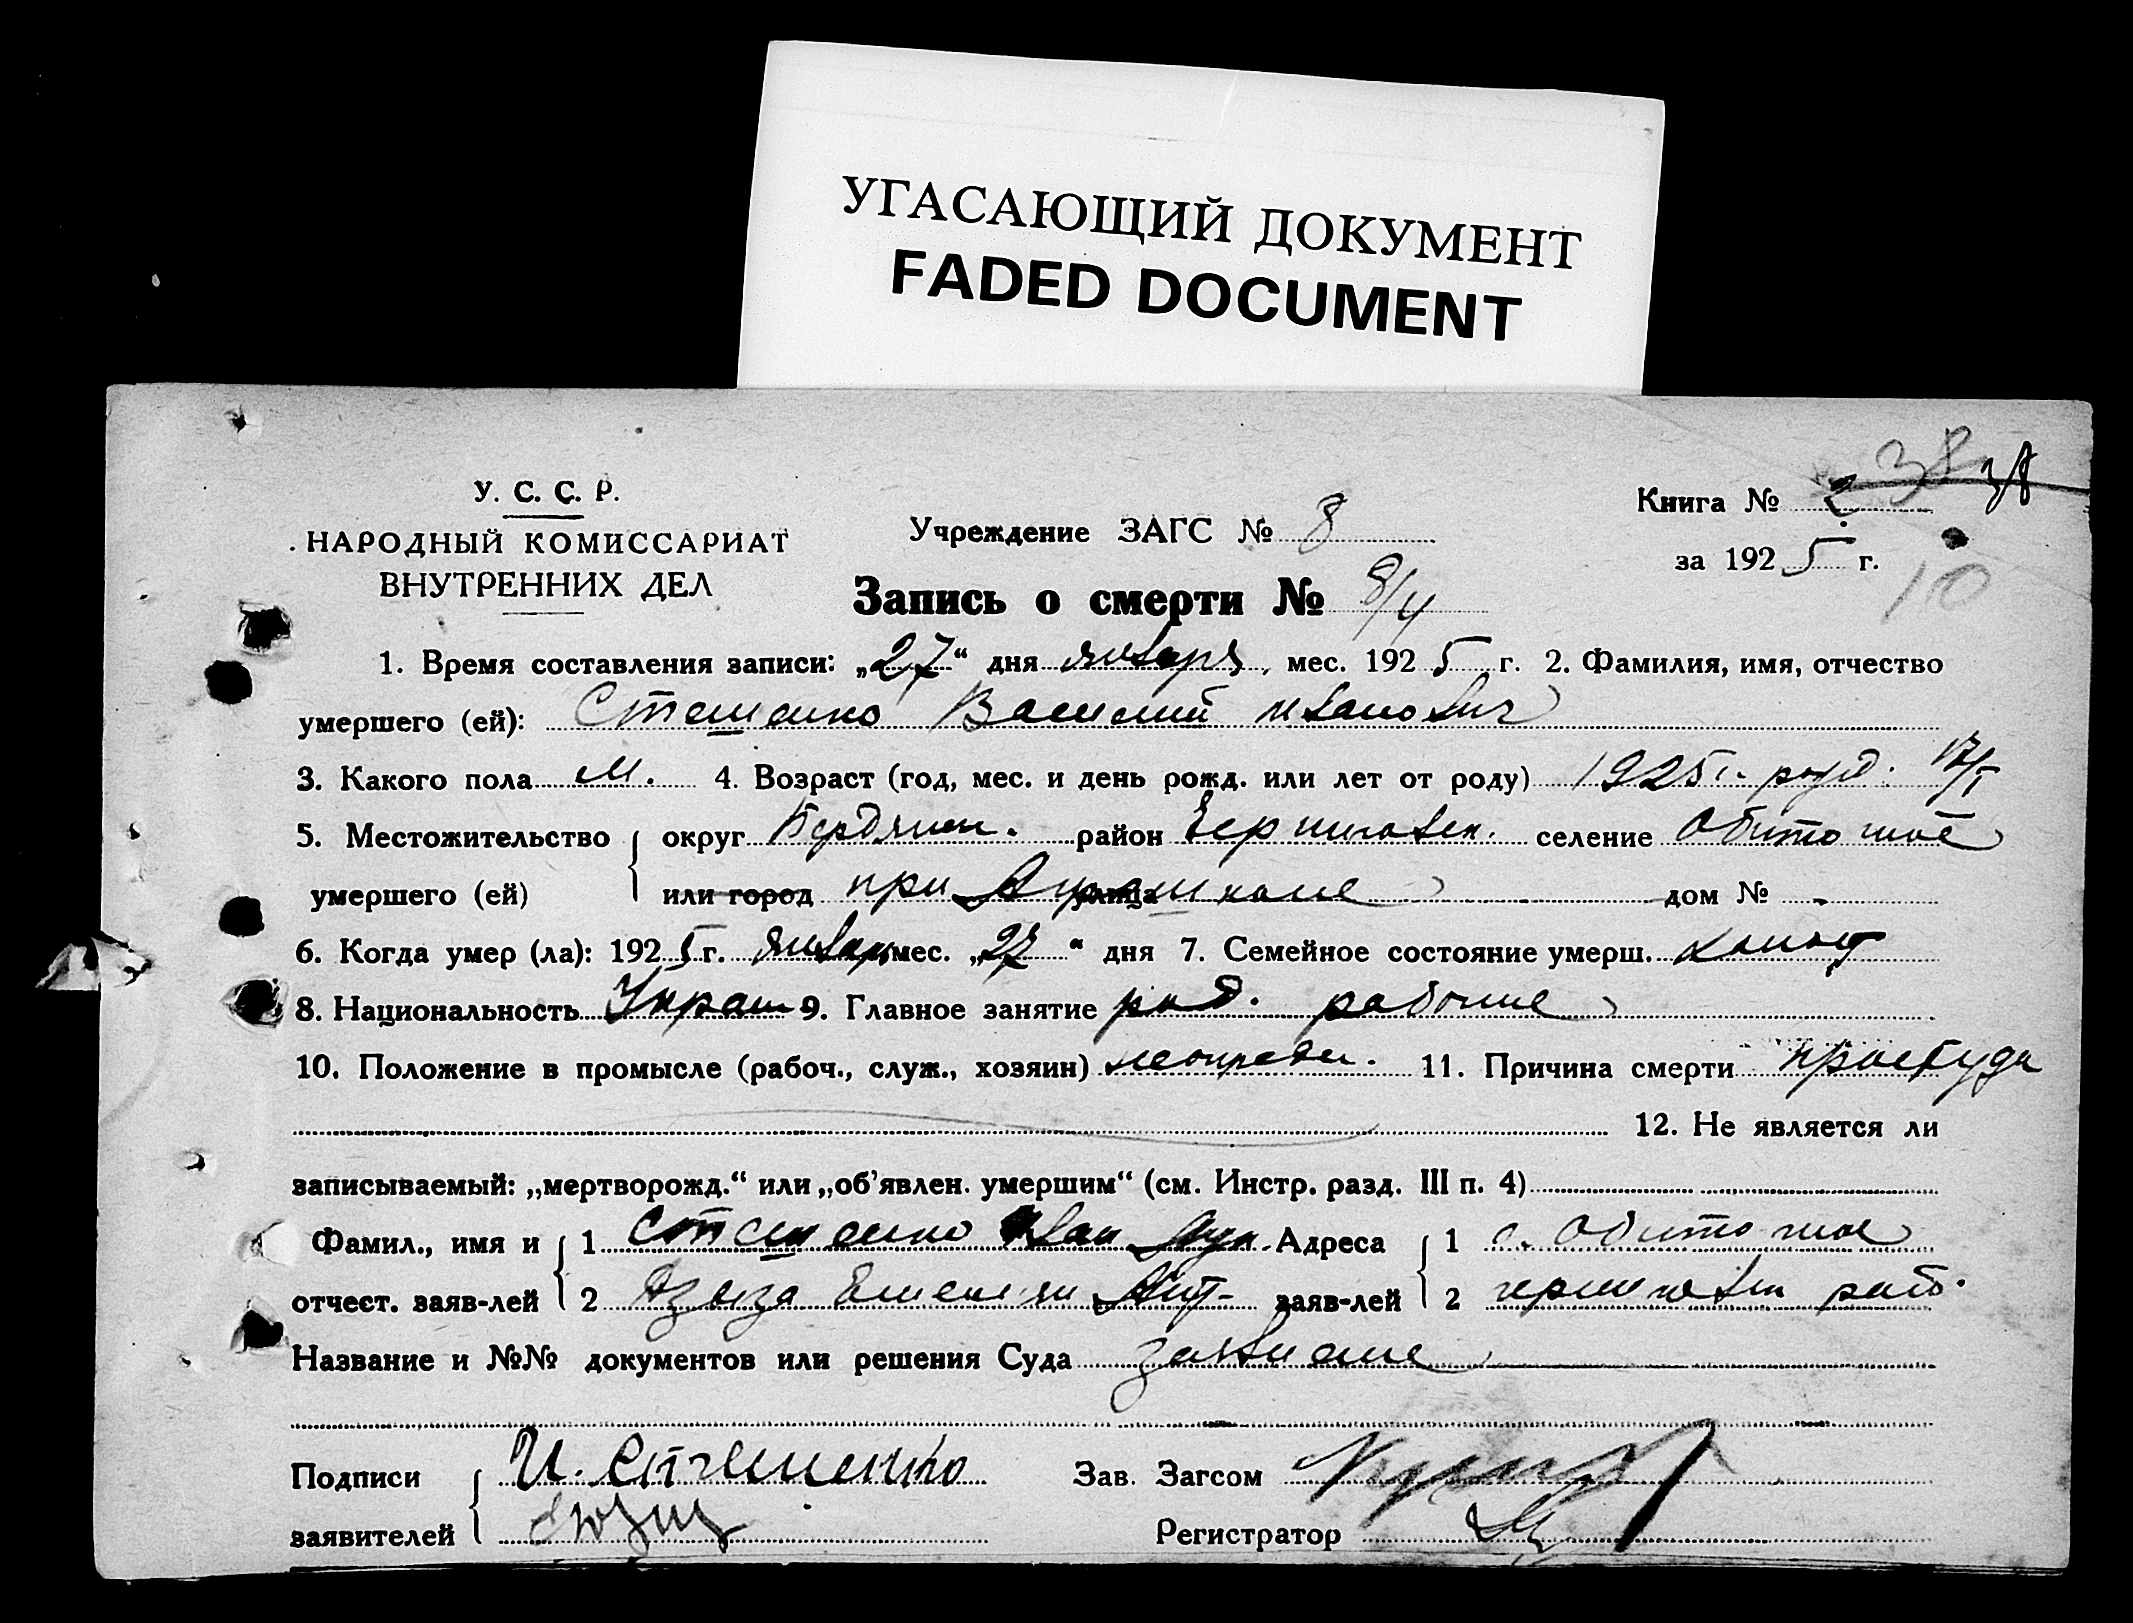 УГАСАЮЩИЙ ДОКУМЕНТ
FADED DOCUMENT
38 38
У. С. С. Р.
НАРОДНЫЙ КОМИССАРИАТ
ВНУТРЕННИХ ДЕЛ
Учреждение ЗАГС № 8
Книга № 2
за 1925 г.
10
Запись о смерти № 8/4
1. Время составления записи: „27“ дня января мес. 1925 г. 2. Фамилия, имя, отчество
умершего (ей): Стешенко Василий Иванович
3. Какого пола м. 4. Возраст (год, мес. и день рожд. или лет от роду) 1925 г. рожд. 17/I
5. Местожительство округ Бердянск. район Черниговск. селение Обиточное
умершего (ей) или город при улица дом № -
6. Когда умер (ла): 1925 г. январ мес. „27“ дня 7. Семейное состояние умерш. холост
8. Национальность Украин 9. Главное занятие род. рабочие
10. Положение в промысле (рабоч., служ., хозяин) 11. Причина смерти простуда
12. Не является ли
записываемый: „мертворожд.“ или „об'явлен. умершим“ (см. Инстр. разд. III п. 4)
Фамил., имя и 1 Стешенко Иван Адреса 1 с. Обиточное
отчест. заяв-лей 2 Емельян заяв-лей 2 черниговск рай.
Название и №№ документов или решения Суда заявление
Подписи И. Стешенко Зав. Загсом
заявителей Регистратор